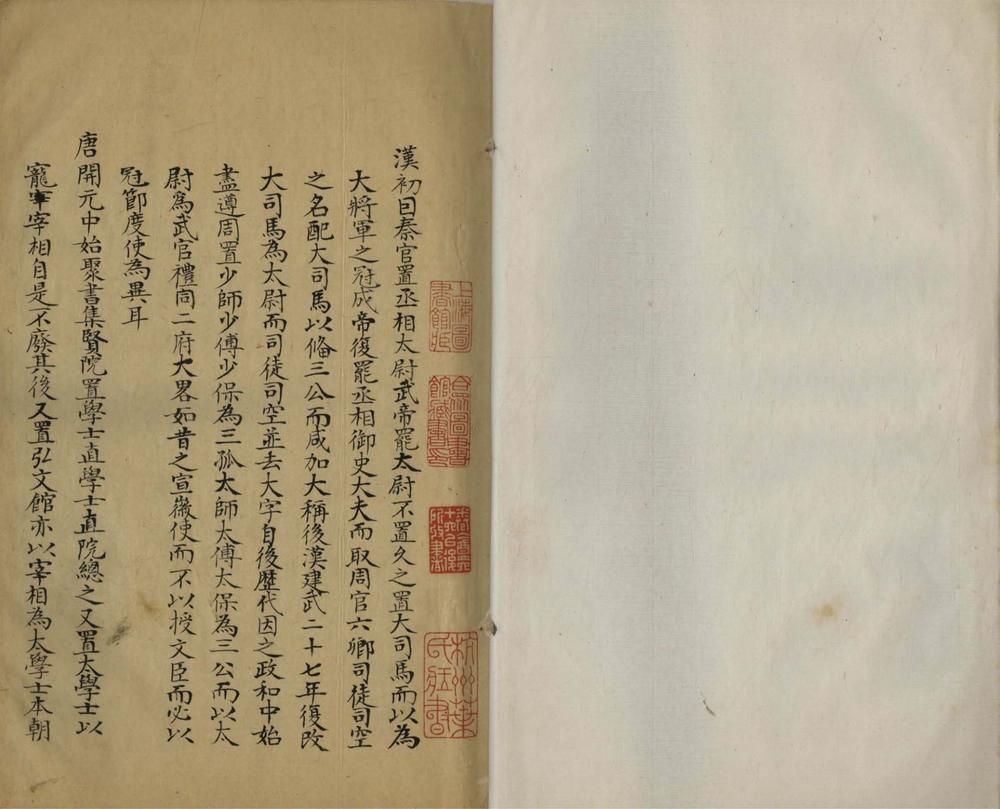 漢初因秦官置丞相太尉武帝罷太尉不置久之置大司馬而以為
大將軍之冠成帝復罷丞相御史大夫而取周官六卿司徒司空
之名配大司馬以俻三公而咸加大稱後漢建武二十七年復改
大司馬為太尉而司徒司空並去大字自後歷代因之政和中始
盡遵周置少師少傅少保為三孤太師太傅太保為三公而以太
尉為武官禮同二府大畧如昔之宣徽使而不以授文臣而必以
冠節度使為異耳
唐開元中始聚書集賢院置學士直學士直院總之又置太學士以
寵宰宰相自是不廢其後又置弘文館亦以宰相為太學士本朝
上海圖書館臧
合眾圖書館臧書印
杭州葉氏臧書